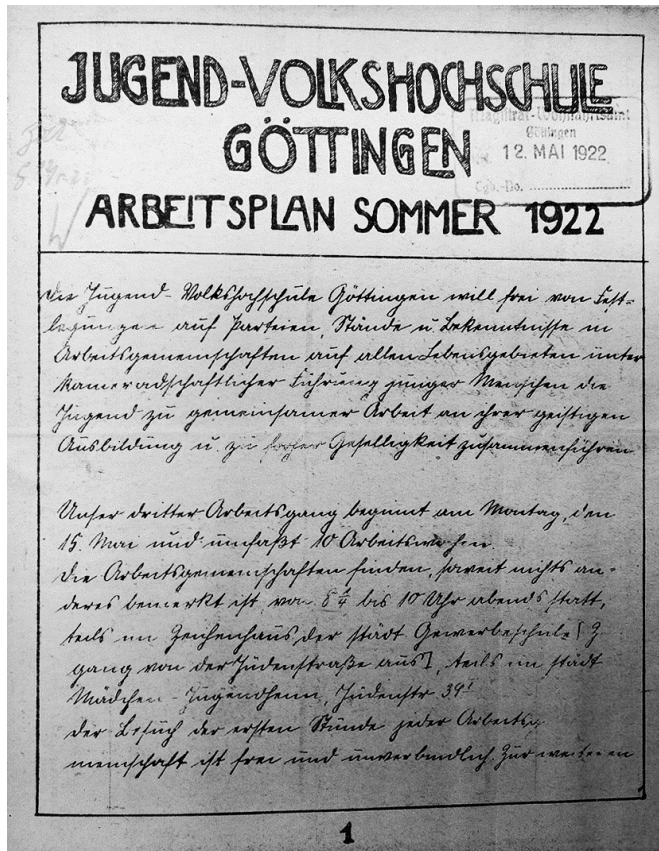 JUGEND-VOLKSHOCHSCHULE
GÖTTINGEN
ARBEITSPLAN SOMMER 1922
Magistrat-Wohlfahrtsamt
Göttingen
12. MAI 1922
Tgb.-No.
Die Jugend-Volkshochschule Göttingen will frei von Fest=
legungen auf Parteien, Stände u Bekenntnisse in
Arbeitsgemeinschaften auf allen Lebensgebieten unter
kameradschaftlicher Führung junger Menschen die
Jugend zu gemeinsamer Arbeit an ihrer geistigen
Ausbildung u. zu froher Geselligkeit zusammenführen
Unser dritter Arbeitsgang beginnt am Montag, den
15. Mai und umfaßt 10 Arbeitswochen.
Die Arbeitsgemeinschaften finden, soweit nichts an-
deres bemerkt ist, von 8 1/4 bis 10 Uhr abends statt,
teils im Zeichenhaus der städt Gewerbeschule [Z
gang von der Judenstraße aus], teils im städt
Mädchen-Jugendheim, Judenstr 39I
Der Besuch der ersten Stunde jeder Arbeitsg
meinschaft ist frei und unverbindlich. Zur weiteren
1